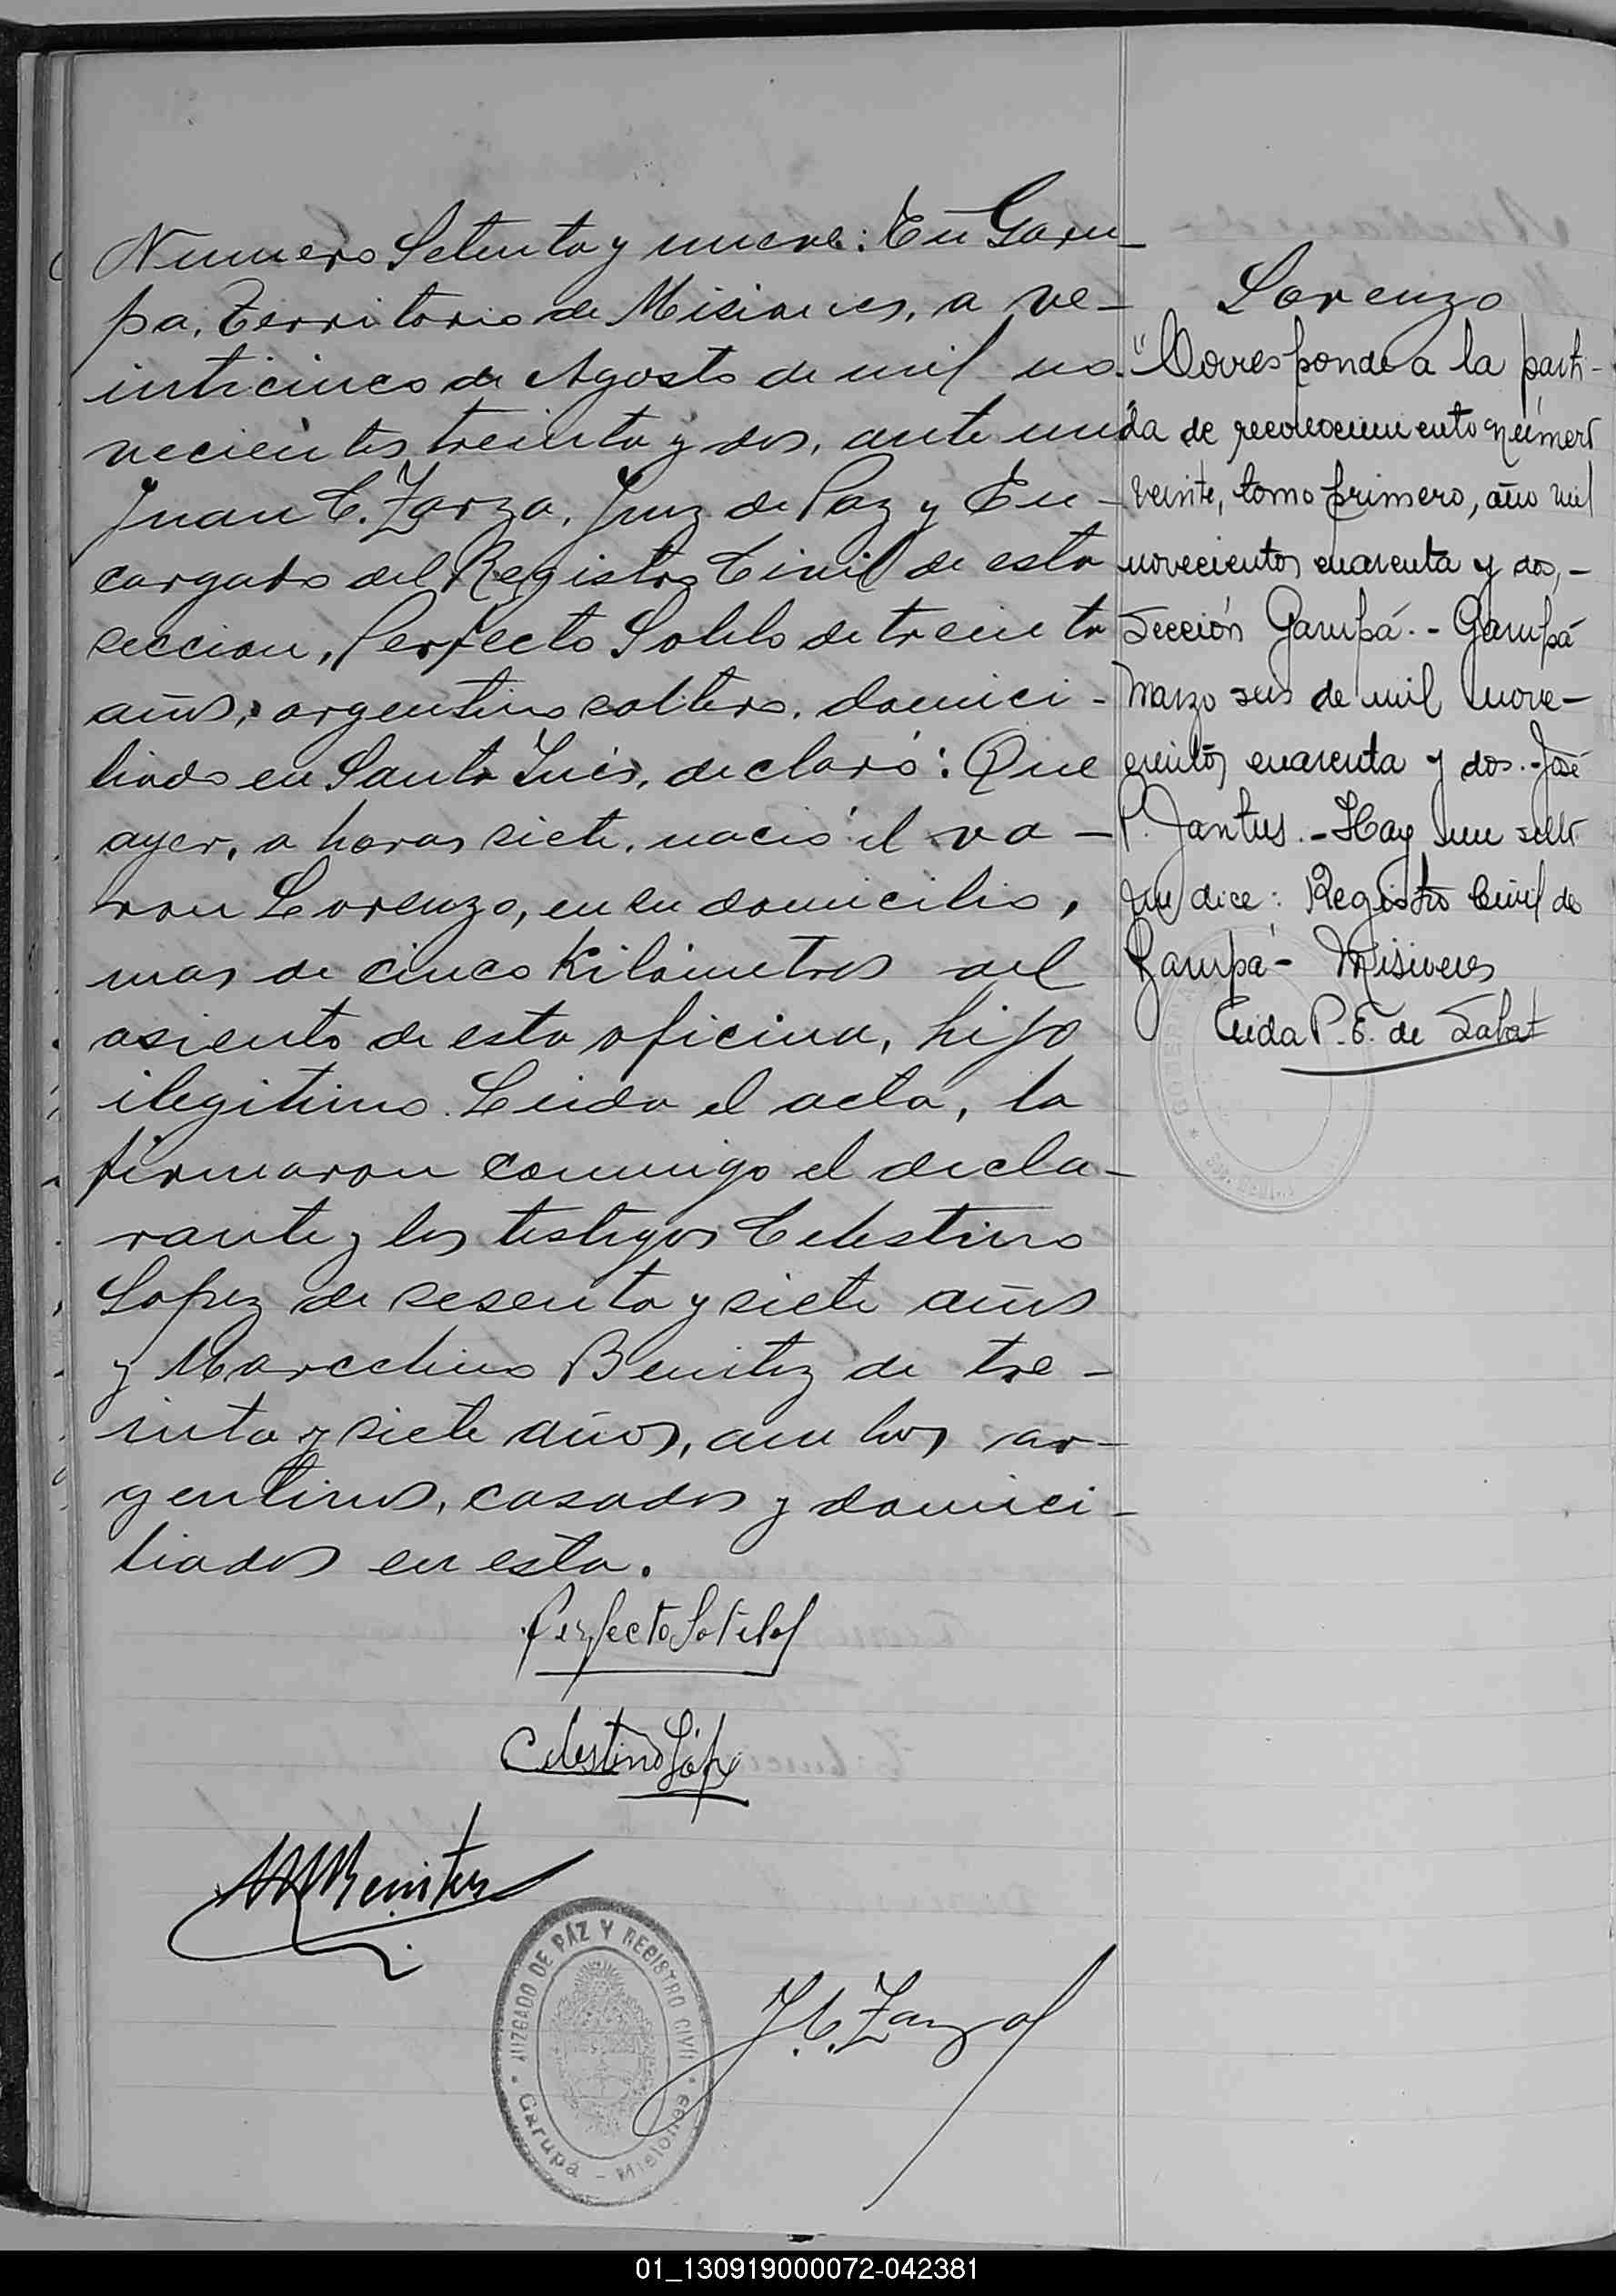 Numero Setenta y nueve: En Garu-
pa, Territorio de Misiones, a ve-
inticinco de Agosto de mil no-
vecientos treinta y dos, ante mi
Juan C. Zarza, Juez de Paz y En-
cargado del Registro Civil de esta
seccion, Perfecto Sotelo de treinta
años, argentino soltero, domici-
liado en Santa Inés, declaró: Que
ayer, a horas siete, nació el va-
ron Lorenzo, en su domicilio,
mas de cinco Kilómetros del
asiento de esta oficina, hijo
ilegitimo. Leida el acta, la
firmaron conmigo el decla-
rante y los testigos Celestino
Lopez de sesenta y siete años
y Marcelino Benitez de tre-
inta y siete años, ambos ar-
gentinos, casados y domici-
liados en esta.
Perfecto Sotelo
Celestino López
M Benitez
J. C. Zarza
JUZGADO DE PAZ Y REGISTRO CIVIL
Garupá - Misiones
Lorenzo
"Corresponde a la parti-
da de reconocimiento número
veinte, tomo primero, año mil
novecientos cuarenta y dos,-
Sección Garupá.- Garupá
Marzo seis de mil nove-
cientos cuarenta y dos.- José
P. Jantus.- Hay un sello
que dice: Registro Civil de
Garupá- Misiones
P. E. de Sabat
01_130919000072-042381